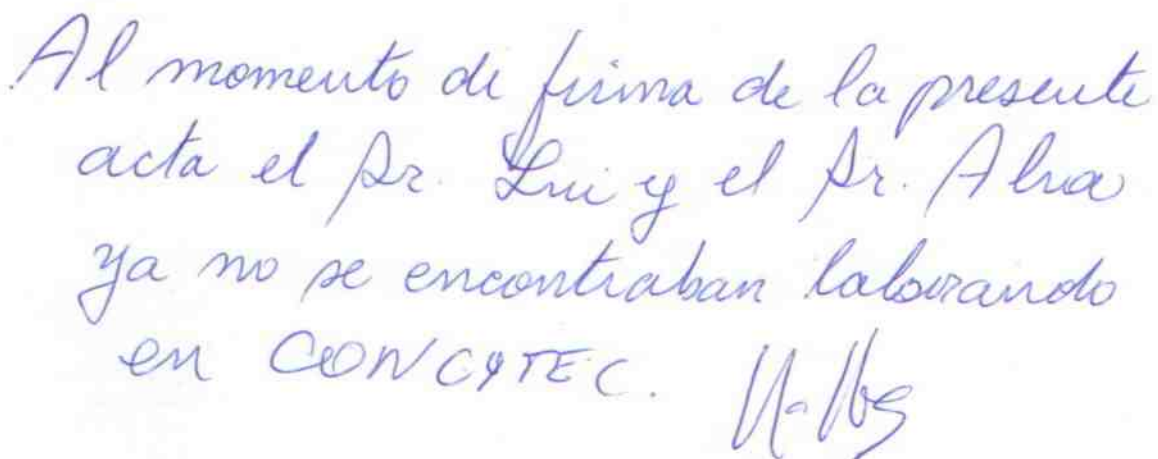 Al momento de firma de la presente
acta el Sr. Lui y el Sr. Alva
ya no se encontraban laborando
en CONCYTEC.